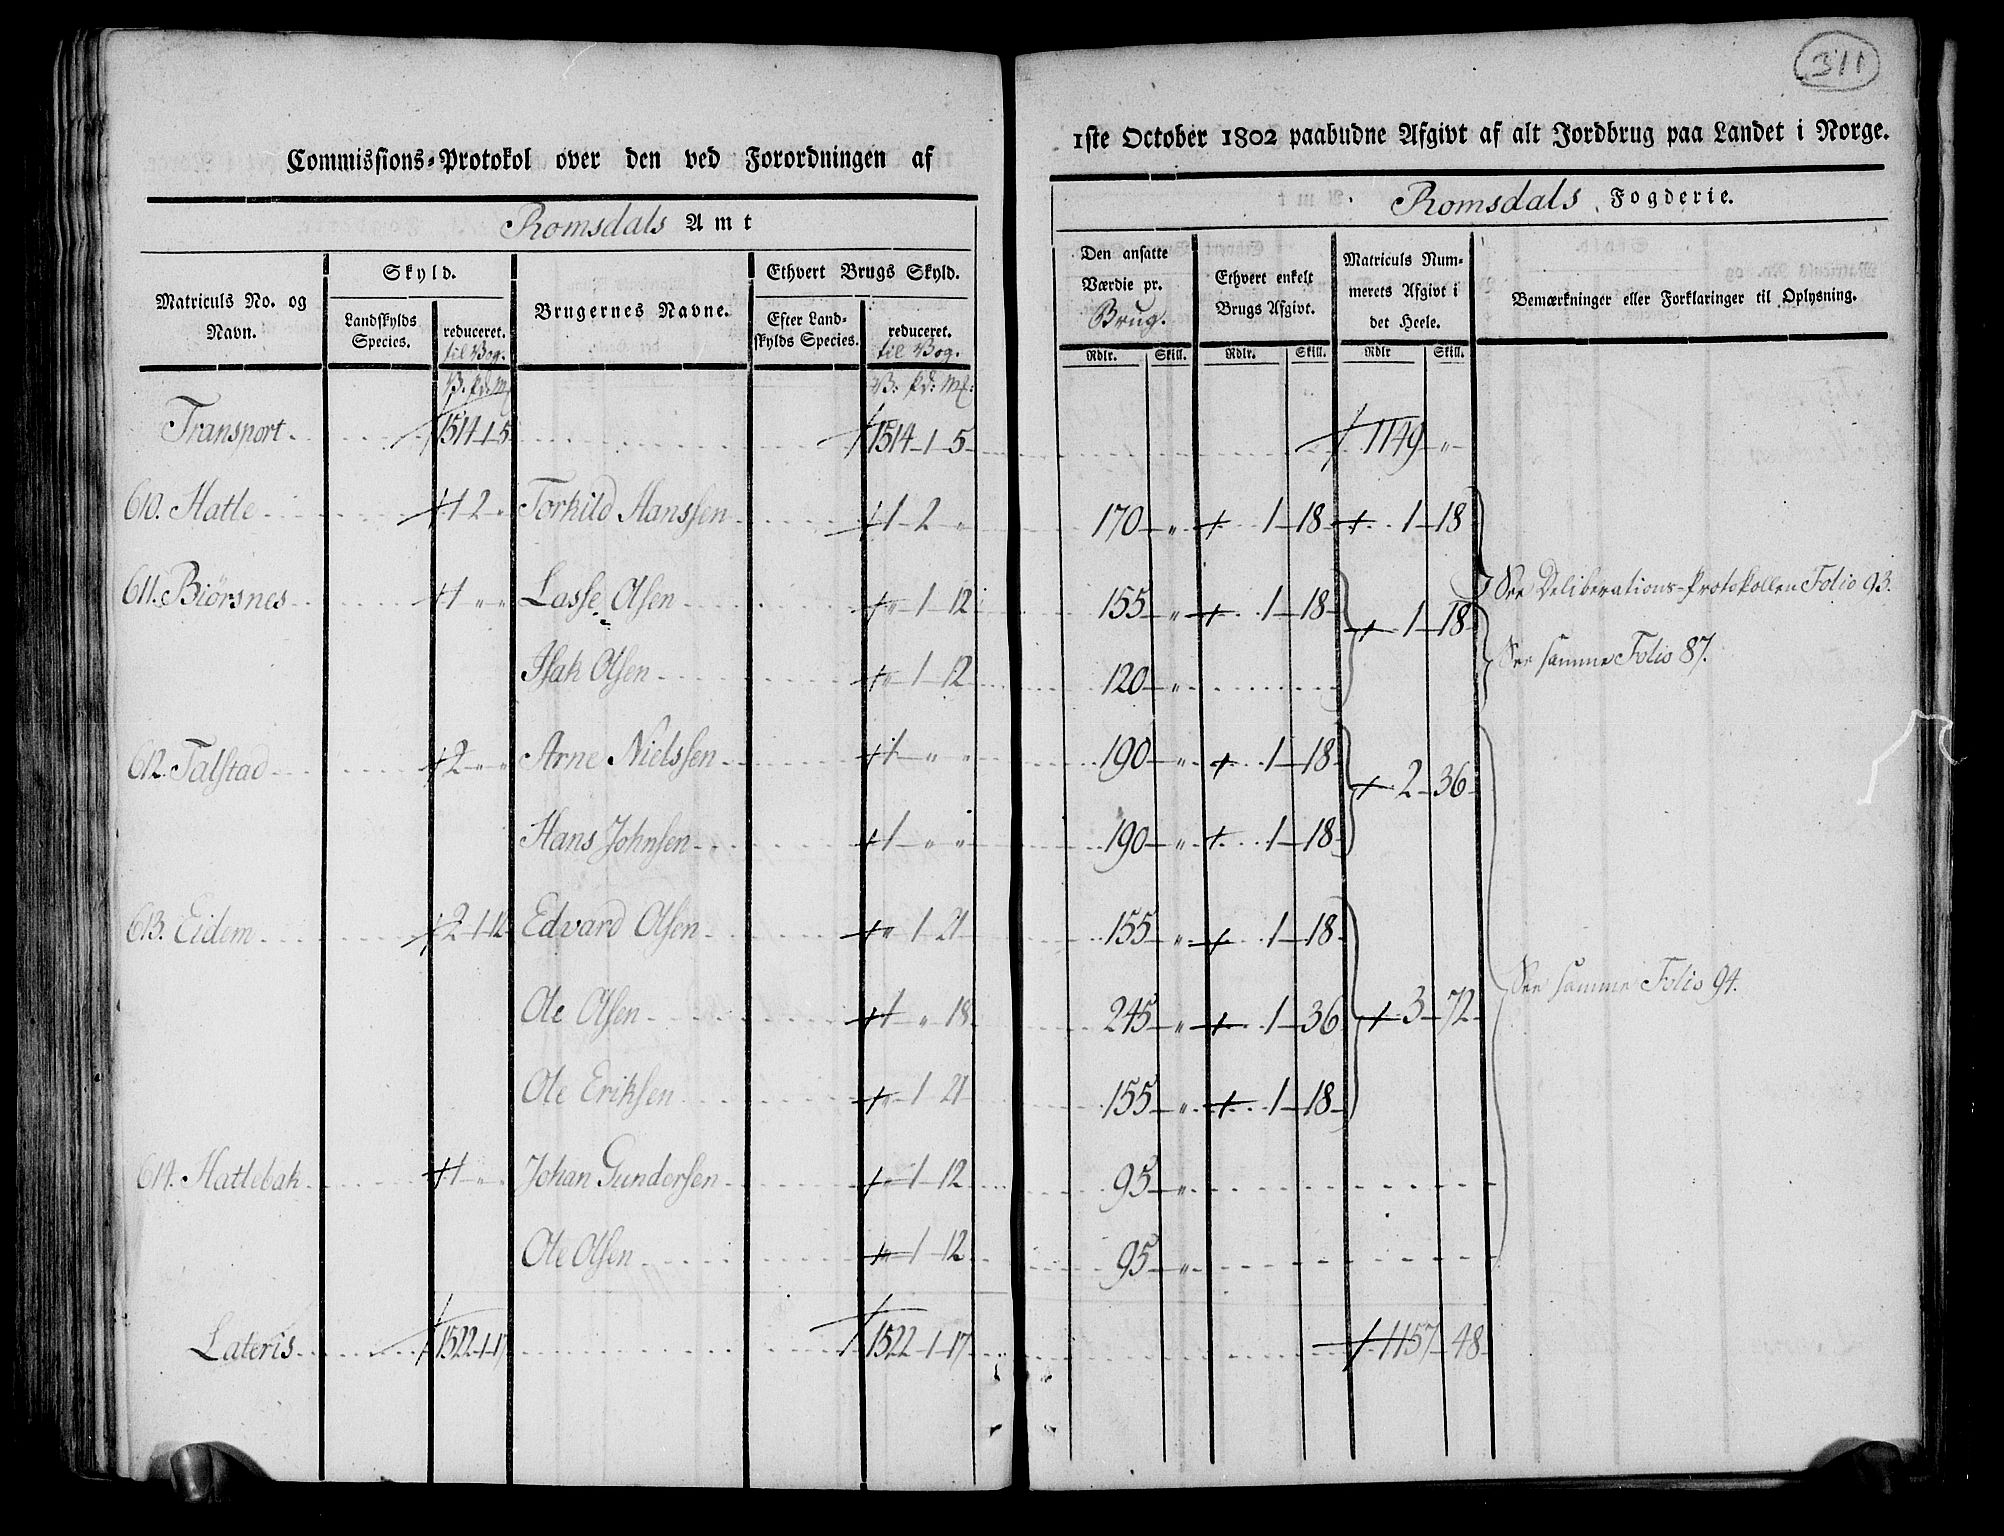 311
Commissions-Protokol over den ved Forordningen af
1ste October 1802 paabudne Afgivt af alt Jordbrug paa Landet i Norge.
Romsdals Amt
Romsdals Fogderie.
Matriculs No. og Navn.
Skyld.
Landskylds Species.
reduceret. til Bog.
Brugernes Navne.
Ethvert Brugs Skyld.
Efter Landskylds Species.
reduceret. til Bog.
Den ansatte Værdie pr. Brug.
Ethvert enkelt Brugs Afgivt.
Matriculs Nummerets Afgivt i det Heele.
Bemærkninger eller Forklaringer til Oplysning.
Rdlr. Skill. Rdlr. Skill. Rdlr Skill.
B. Pd: Mk B: Pd: Mk:
Transport 1514-1-5 1514-1-5 1149 "
610. Hatle 1 2 " Torkild Hanssen 1-2 " 170 " 1-18 1-18
611. Biörsnes 1 " " Lasse Olsen " 1 12 155 " 1-18 1-18 See Deliberations-Protokollen Folio 93.
Isak Olsen " 1 12 120 " See samme Folio 87.
612. Talstad 2 " " Arne Nielssen 1 " " 190 " 1-18 2-36
Hans Johnsen 1 " " 190 " 1-18
613. Eidem 2-1-12 Edvard Olsen " 1 21 155 " 1-18 3-72 See samme Folio 94.
Ole Olsen 1 " 18 245 " 1-36
Ole Eriksen " 1 21 155 " 1-18
614. Hatlebak 1 " " Johan Gundersen " 1 12 95 "
Ole Olsen " 1 12 95 "
Lateris 1522-1-17 1522-1-17 1157-48